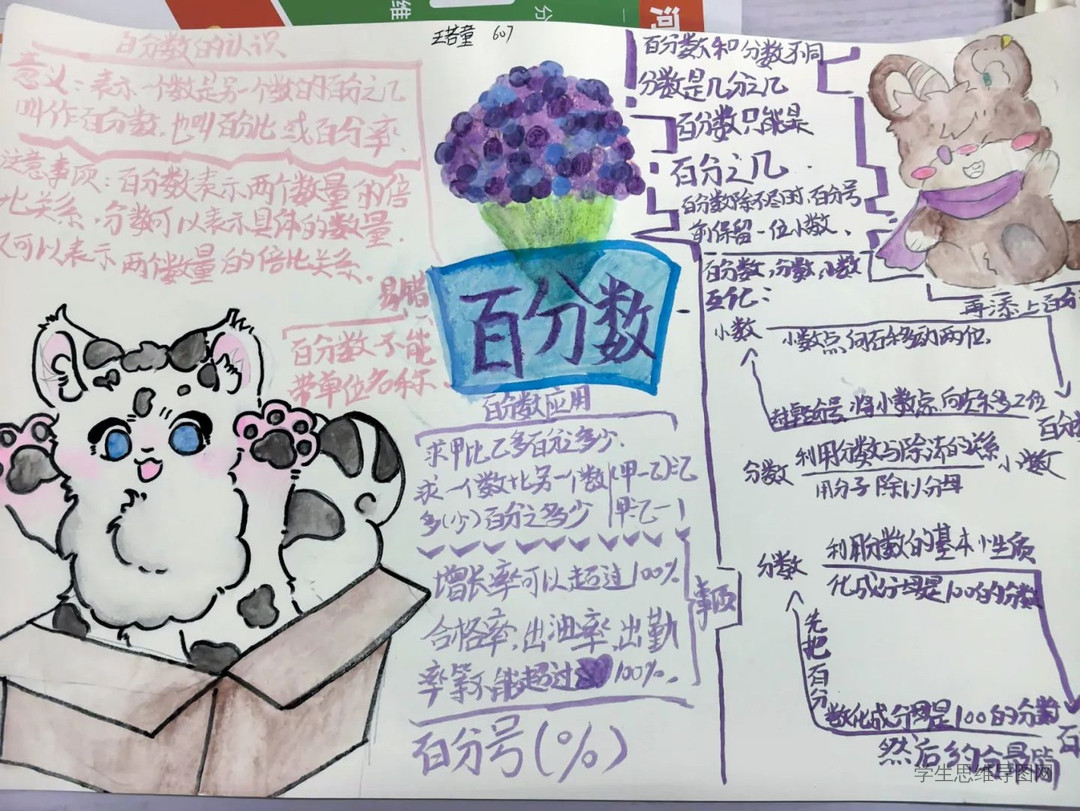 王若童 607
百分数的认识
意义:表示一个数是另一个数的百分之几
叫作百分数.也叫百分比或百分率.
注意事项:百分数表示两个数量的倍
比关系.分数可以表示具体的数量.
又可以表示两个数量的倍比关系.
易错
百分数不能
带单位名称.
百分数
百分数应用
求甲比乙多百分之多少.
求一个数比另一个数
多(少)百分之多少
(甲-乙)÷乙
甲÷乙-1
增长率可以超过100%
合格率,出油率,出勤
率等不能超过100%.
事项
百分号(%)
百分数和分数不同
分数是几分之几
百分数只能是
百分之几.
百分数除不尽时,百分号
前保留一位小数.
百分数,分数,小数
互化:
再添上百分
小数
小数点向右移动两位.
去掉百分号 将小数点向左移2位
百分
分数
利用分数与除法的关系
用分子除以分母
小数
分数
利用分数的基本性质
化成分母是100的分数
先把百分
数化成分母是100的分数
百
然后约分最简
学生思维导图网